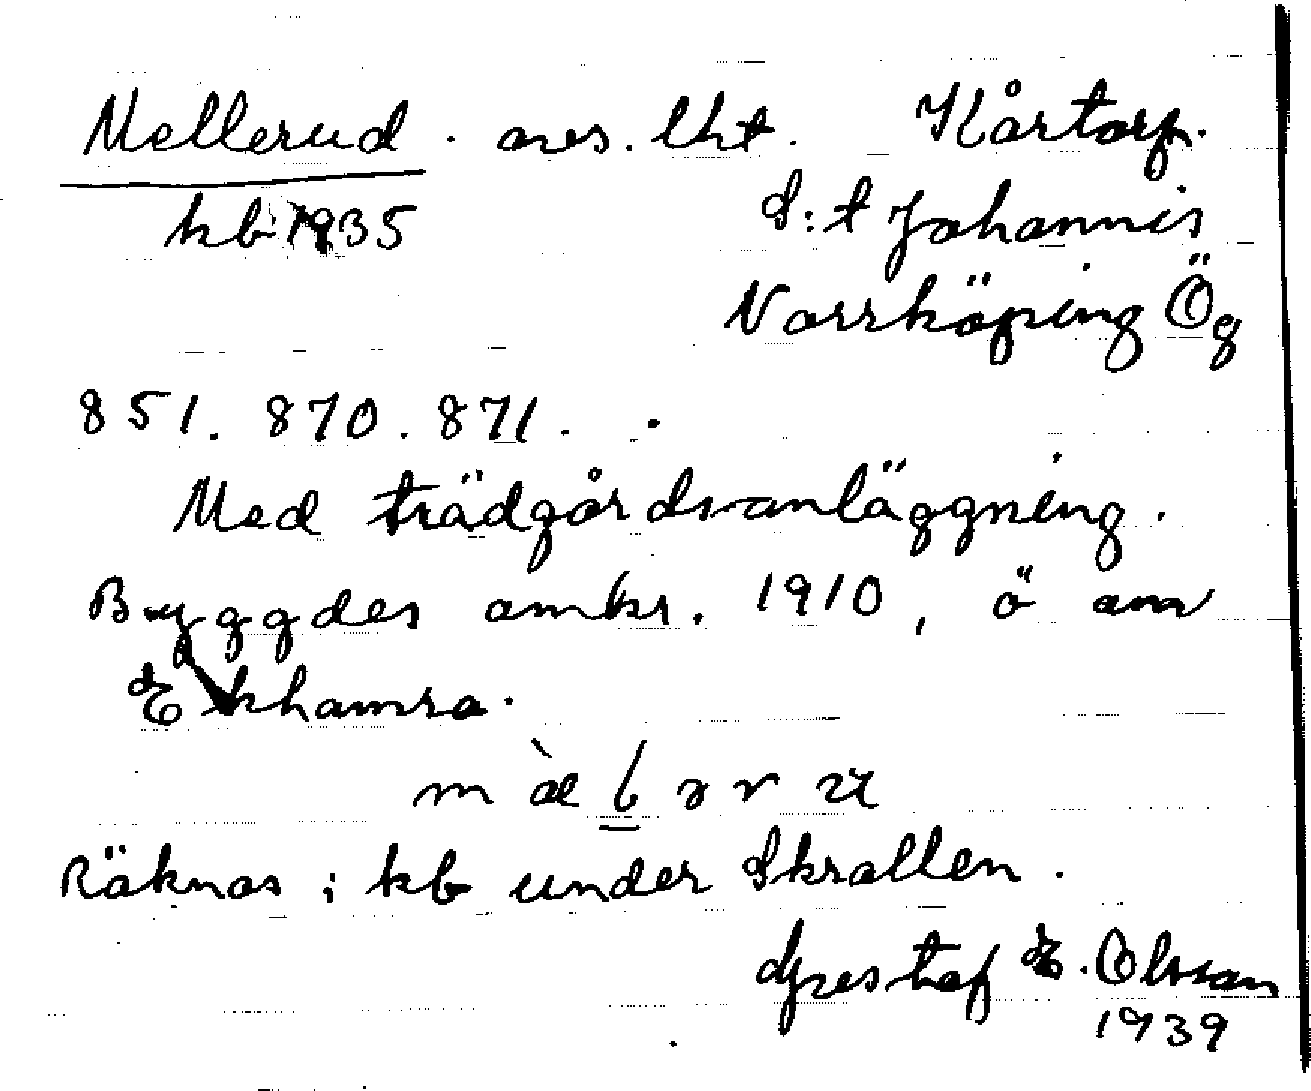 Mellerud. avs. lht. Kårtorp.
kb 1935 S:t Johannis
Norrköping Ög
851. 870. 871.
Med trädgårdsanläggning.
Byggdes omkr. 1910, ö om
Ekhamra.
Räknas i kb under Skrallen.
Gustaf E. Olsson
1939